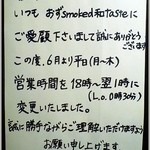 いつも あずsmoked和tasteに
ご愛顧下さいまして誠にありがとう
ございます
この度、6月より平日(月~木)
営業時間を18時~翌1時に
(L.o.0時30分)
変更いたしました。
誠に勝手ながらご理解いただけますよう
お願い申し上げます